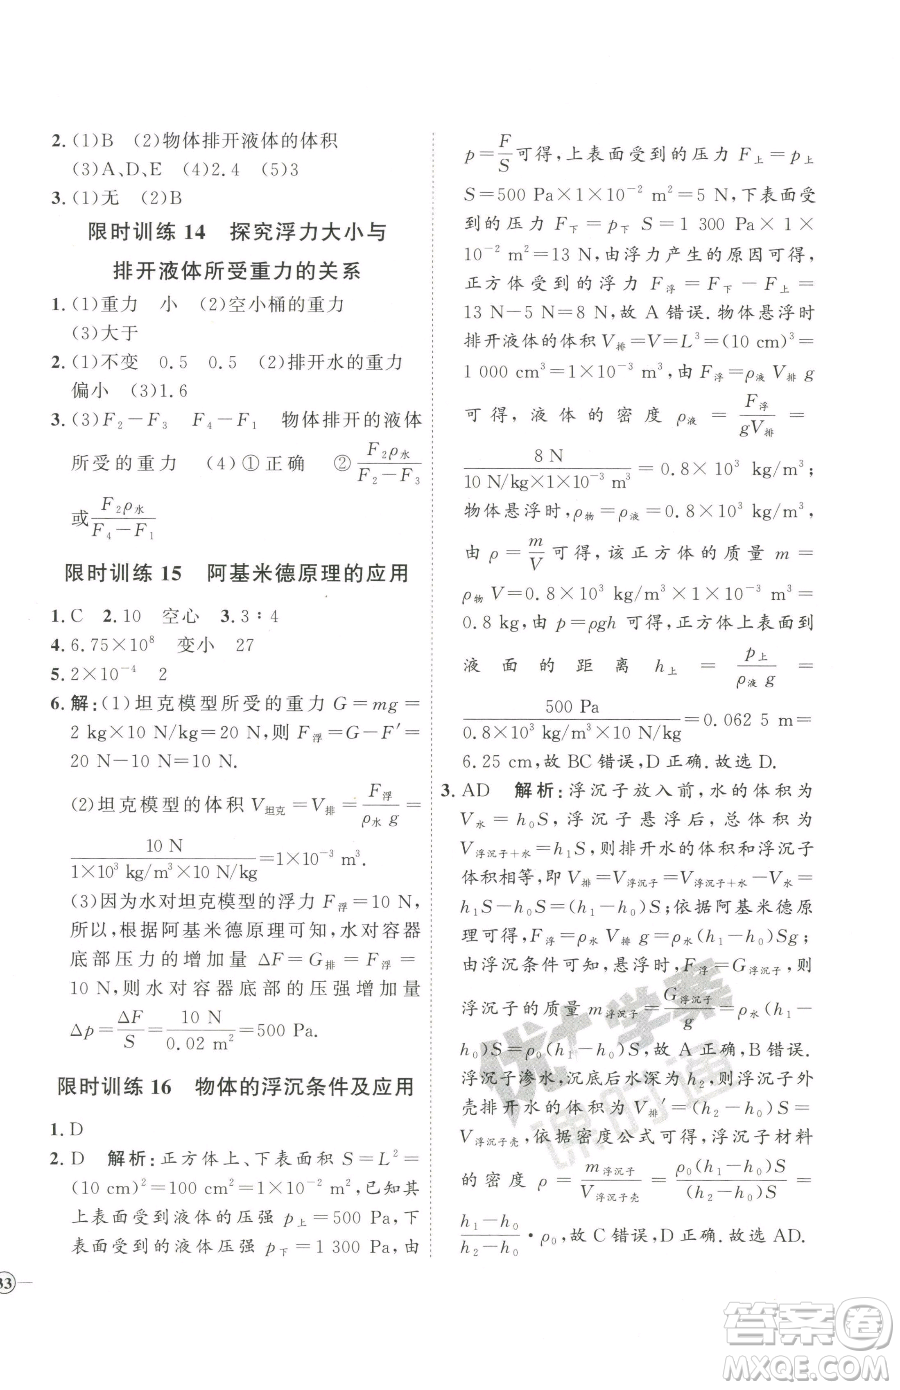 2. (1)B　(2)物体排开液体的体积
(3)A、D、E　(4)2.4　(5)3
3. (1)无　(2)B
限时训练 14　探究浮力大小与
排开液体所受重力的关系
1. (1)重力　小　(2)空小桶的重力
(3)大于
2. (1)不变　0.5　0.5　(2)排开水的重力
偏小　(3)1.6
3. (3)F₂－F₃　F₄－F₁　物体排开的液体
所受的重力　(4)①正确　②F₂ρ水/(F₂－F₃)
或F₂ρ水/(F₄－F₁)
限时训练 15　阿基米德原理的应用
1. C　2. 10　空心　3. 3∶4
4. 6.75×10⁸　变小　27
5. 2×10⁻⁴　2
6. 解:(1)坦克模型所受的重力 G＝mg＝
2 kg×10 N/kg＝20 N,则 F浮＝G－F′＝
20 N－10 N＝10 N.
(2)坦克模型的体积 V坦克＝V排＝F浮/(ρ水 g)＝
10 N/(1×10³ kg/m³×10 N/kg)＝1×10⁻³ m³.
(3)因为水对坦克模型的浮力 F浮＝10 N,
所以,根据阿基米德原理可知,水对容器
底部压力的增加量 ΔF＝G排＝F浮＝
10 N,则水对容器底部的压强增加量
Δp＝ΔF/S＝10 N/0.02 m²＝500 Pa.
限时训练 16　物体的浮沉条件及应用
1. D
2. D　解析:正方体上、下表面面积 S＝L²＝
(10 cm)²＝100 cm²＝1×10⁻² m²,已知上
表面受到液体的压强 p上＝500 Pa,下
表面受到液体的压强 p下＝1 300 Pa,由
33
p＝F/S可得,上表面受到的压力 F上＝p上
S＝500 Pa×1×10⁻² m²＝5 N,下表面受
到的压力 F下＝p下 S＝1 300 Pa×1×
10⁻² m²＝13 N,由浮力产生的原因可得,
正方体受到的浮力 F浮＝F下－F上＝
13 N－5 N＝8 N,故 A 错误.物体悬浮时
排开液体的体积 V排＝V＝L³＝(10 cm)³＝
1 000 cm³＝1×10⁻³ m³,由 F浮＝ρ液 V排 g
可得,液体的密度 ρ液＝F浮/(gV排)＝
8 N/(10 N/kg×1×10⁻³ m³)＝0.8×10³ kg/m³;
物体悬浮时,ρ物＝ρ液＝0.8×10³ kg/m³,
由 ρ＝m/V可得,该正方体的质量 m＝
ρ物 V＝0.8×10³ kg/m³×1×10⁻³ m³＝
0.8 kg,由 p＝ρgh 可得,正方体上表面到
液面的距离 h上＝p上/(ρ液 g)＝
500 Pa/(0.8×10³ kg/m³×10 N/kg)＝0.062 5 m＝
6.25 cm,故 BC 错误,D 正确.故选 D.
3. AD　解析:浮沉子放入前,水的体积为
V水＝h₀S,浮沉子悬浮后,总体积为
V浮沉子＋水＝h₁S,则排开水的体积和浮沉子
体积相等,即 V排＝V浮沉子＝V浮沉子＋水－V水＝
h₁S－h₀S＝(h₁－h₀)S;依据阿基米德原
理可得,F浮＝ρ水 V排 g＝ρ₀(h₁－h₀)Sg;
由浮沉条件可知,悬浮时,F浮＝G浮沉子,
浮沉子的质量 m浮沉子＝G浮沉子/g＝ρ水(h₁－
h₀)S＝ρ₀(h₁－h₀)S,故 A 正确,B 错误.
浮沉子渗水,沉底后水深为 h₂,浮沉子外
壳排开水的体积为 V排′＝(h₂－h₀)S＝
V浮沉子壳,依据密度公式可得,浮沉子材料
的密度 ρ＝m浮沉子/V浮沉子壳＝ρ₀(h₁－h₀)S/((h₂－h₀)S)＝
(h₁－h₀)/(h₂－h₀)·ρ₀,故 C 错误,D 正确.故选 AD.
优+学案
课时通
答案圈
MXQE.COM